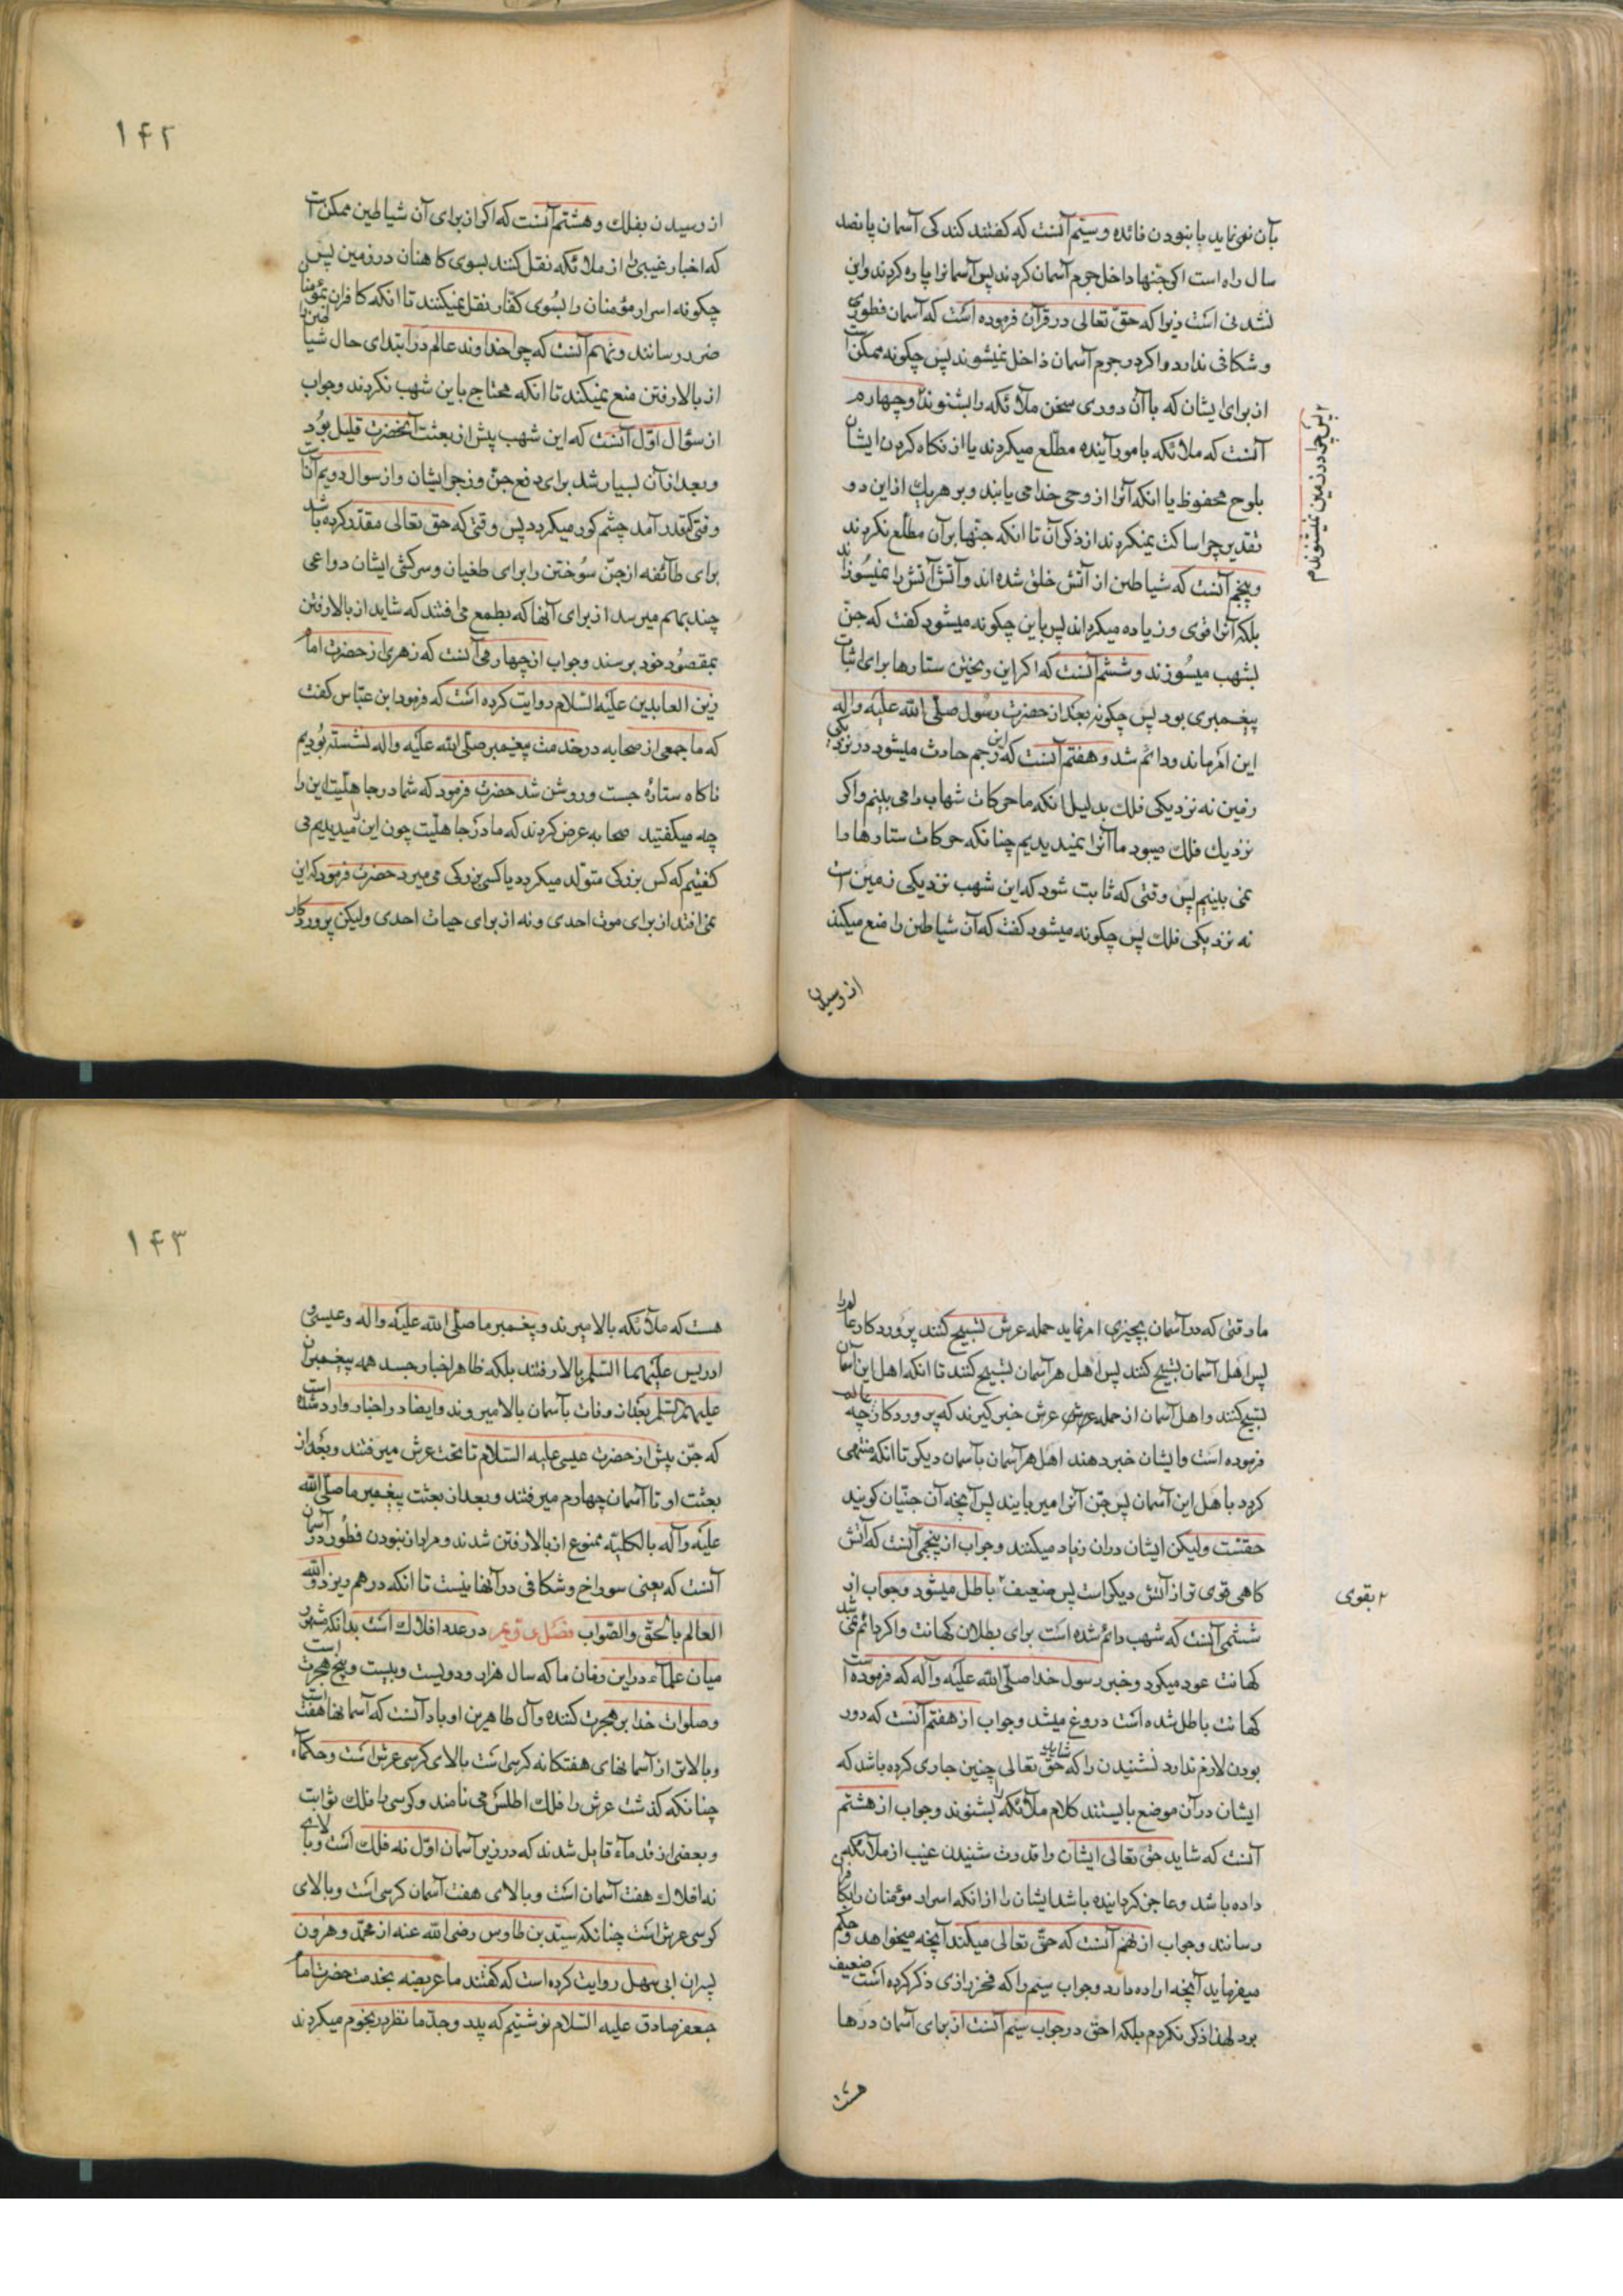 بآن نمی نماید پا بنبودن فائده و سیّم آنست که گفتند کندکی آسمان پانصد
سال راه است اگر جنّها داخل جرم آسمان کردند پس آسمانرا پاره کردند و این
نشدنی است زیرا که حقّ تعالی در قرآن فرموده است که آسمان فطوری
و شکافی ندارد و اگر در جرم آسمان داخل نمیشوند پس چگونه ممکن است
از برای ایشان که با آن دوری سخن ملائکه را بشنوند و چهارم
آنست که ملائکه بامور آینده مطّلع میکردند یا از نگاه کردن ایشان
بلوح محفوظ یا انکه آنرا از وحی خدا می یابند و بر هر یك از این دو
تقدیر چرا ساکت نمیکردند از ذکر آن تا انکه جنّها بر آن مطّلع نکردند
و پنجم آنست که شیاطین از آتش خلق شده اند و آتش آتش را نمیسوزاند
بلکه آنرا قوی و زیاده میکرداند پس باین چگونه میشود گفت که جنّ
بشهب میسوزند و ششم آنست که اگر این ریختن ستارها برای اثبات
پیغمبری بود پس چگونه بعد از حضرت رسول صلّی الله علیه واله
این امر ماند و دائم شد و هفتم آنست که این رجم حادث میشود در نزدیکی
زمین نه نزدیکی فلك بدلیل انکه ما حرکات شهاب را می بینیم و اگر
نزدیك فلك میبود ما آنرا نمیدیدیم چنانکه حرکات ستارها را
نمی بینیم پس وقتی که ثابت شود که این شهب نزدیکی زمین است
نه نزدیکی فلك پس چگونه میشود گفت که آن شیاطین را منع میکند
از رسیدن
پس چرا در زمین نمیشنوندم
۱۴۲
از رسیدن بفلك و هشتم آنست که اگر از برای آن شیاطین ممکن است
که اخبار غیبی را از ملائکه نقل کنند بسوی کاهنان در زمین پس
چگونه اسرار مؤمنان را بسوی کفّار نقل نمیکنند تا انکه کافران بمؤمنان
ضرر رسانند و نهم آنست که چرا خداوند عالم در ابتدای حال شیاطین را
از بالا رفتن منع نمیکند تا انکه محتاج باین شهب نکردند و جواب
از سؤال اوّل آنست که این شهب پیش از بعثت آنحضرت قلیل بود
و بعد از آن بسیار شد برای دفع جنّ و زجر ایشان و از سوال دویم آنست
وقتی که قدر آمد چشم کور میکردد پس وقتی که حق تعالی مقدّر کرده باشد
برای طائفه از جنّ سوختن را برای طغیان و سرکشی ایشان دواعی
چند بهم میرسد از برای آنها که بطمع می افتند که شاید از بالا رفتن
بمقصود خود برسند و جواب از چهارمی آنست که زهری از حضرت امام
زین العابدین علیه السّلام روایت کرده است که فرمود ابن عبّاس گفت
که ما جمعی از صحابه در خدمت پیغمبر صلّی الله علیه واله نشسته بودیم
ناکاه ستارهٔ جست و روشن شد حضرت فرمود که شما در جاهلیّت این را
چه میکفتید صحابه عرض کردند که ما در جاهلیّت چون این را میدیدیم می
کفتیم که کس بزرکی متولّد میکردد یا کسی بزرکی می میرد حضرت فرمود که این
نمی افتد از برای موت احدی و نه از برای حیات احدی ولیکن پروردکار
ما وقتی که در آسمان بچیزی امر نماید حمله عرش تسبیح کنند پروردکار عالم را
پس اهل آسمان تسبیح کنند پس اهل هر آسمان تسبیح کنند تا انکه اهل این آسمان
تسبیح کنند و اهل آسمان از حمله عرش عرش خبر کیرند که پروردکار عالم چه
فرموده است و ایشان خبر دهند اهل هر آسمان بآسمان دیکر تا انکه منتهی
کردد باهل این آسمان پس جنّ آنرا میربایند پس آنچه آن جنّیان کویند
حقست ولیکن ایشان در آن زیاد میکنند و جواب از پنجمی آنست که آتش
کاهی قوی تر از آتش دیکر است پس ضعیف باطل میشود و جواب از
ششمی آنست که شهب دائم شده است برای بطلان کهانت و اکر دائم نمی شد
کهانت عود میکرد و خبر رسول خدا صلّی الله علیه وآله که فرموده است
کهانت باطل شده است دروغ میشد و جواب از هفتم آنست که دور
بودن لازم ندارد نشنیدن را که شاید حقّ تعالی چنین جاری کرده باشد که
ایشان در آن موضع بایستند کلام ملائکه را بشنوند و جواب از هشتم
آنست که شاید حق تعالی ایشان را قدرت شنیدن غیب از ملائکه
داده باشد و عاجز کردانیده باشد ایشان را از انکه اسرار مؤمنان را بکافران
رسانند و جواب از نهم آنست که حقّ تعالی میکند آنچه میخواهد و حکم
میفرماید آنچه اراده دارد و جواب سیم را که فخر رازی ذکر کرده است ضعیف
بود لهذا ذکر نکردم بلکه احق در جواب سیم آنست از برای آسمان درها
هست
۲ بقوی
۱۴۳
هست که ملائکه بالا میرند و پیغمبر ما صلّی الله علیه واله و عیسی و
ادریس علیهما السّلم بالا رفتند بلکه ظاهر اخبار جسد همه پیغمبران
علیهم السّلم بعد از وفات بآسمان بالا میروند و ایضا در اخبار وارد شده است
که جنّ پیش از حضرت عیسی علیه السّلام تا تحت عرش میرفتند و بعد از
بعثت او تا آسمان چهارم میرفتند و بعد از بعثت پیغمبر ما صلّی الله
علیه وآله بالکلیّه ممنوع از بالا رفتن شدند و مراد از نبودن فطور در آسمان
آنست که یعنی سوراخ و شکافی در آنها نیست تا انکه در هم ریزد والله
العالم بالحقّ والصّواب فصل دویم در عدد افلاك است بدانکه مشهور
میان علماء در این زمان ما که سال هزار و دویست و بیست و پنج هجرت است
و صلوات خدا بر هجرت کننده و آل طاهرین او باد آنست که آسمانها هفت است
و بالاتر از آسمانهای هفتکانه کرسی است بالای کرسی عرش است و حکماء
چنانکه کذشت عرش را فلك اطلس می نامند و کرسی را فلك ثوابت
و بعضی از قدماء قایل شدند که در زیر آسمان اوّل نه فلك است و بالای
نه افلاك هفت آسمان است و بالای هفت آسمان کرسی است و بالای
کرسی عرش است چنانکه سیّد بن طاوس رضی الله عنه از محمّد و هرون
پسران ابی سهل روایت کرده است که گفتند ما عریضه بخدمت حضرت امام
جعفر صادق علیه السّلام نوشتیم که پدر و جدّ ما نظر در نجوم میکردند